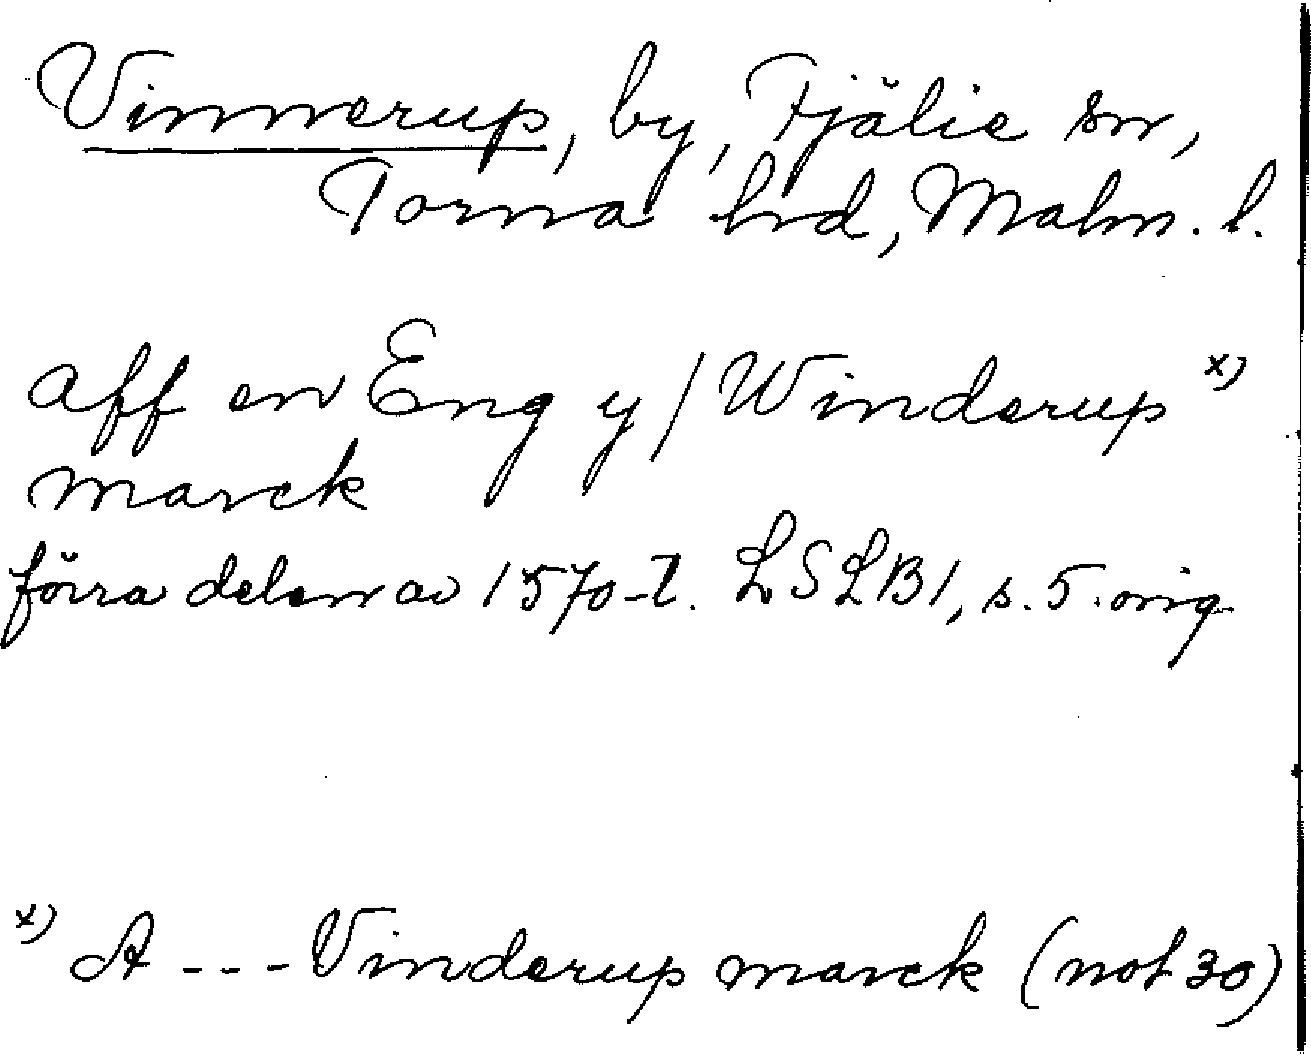 Vinnerup, by, Fjälie sn,
Torna hrd, Malm. l.
aff en Eng y / Winderup x)
marck
förra delen av 1570-t. LSLB1, s. 5. orig
x) A --- Vinderup marck (not 30)